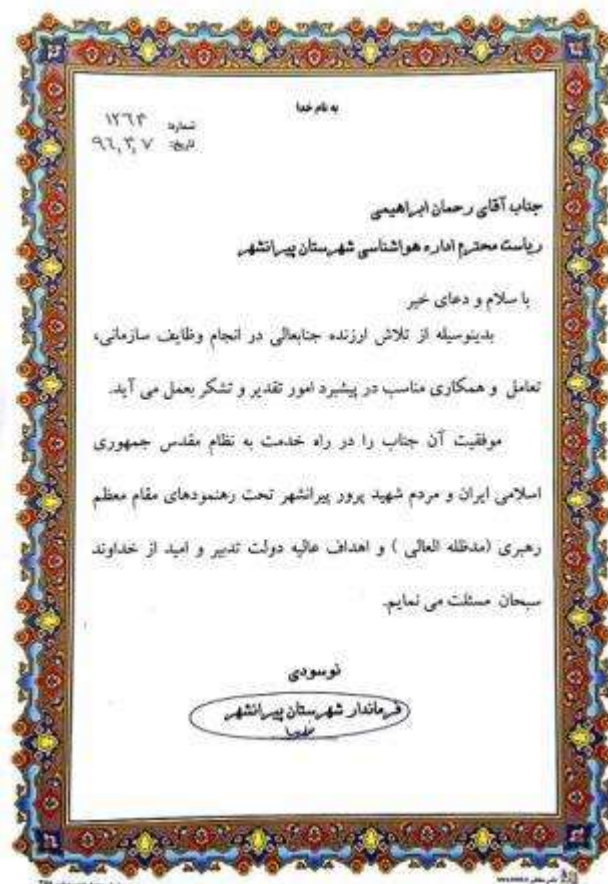 به نام خدا
شماره: ۱۲۶۳
تاریخ: ۹۶,۳,۷
جناب آقای رحمان ابراهیمی
ریاست محترم اداره هواشناسی شهرستان پیرانشهر
با سلام و دعای خیر
بدینوسیله از تلاش ارزنده جنابعالی در انجام وظایف سازمانی،
تعامل و همکاری مناسب در پیشبرد امور تقدیر و تشکر بعمل می آید.
موفقیت آن جناب را در راه خدمت به نظام مقدس جمهوری
اسلامی ایران و مردم شهید پرور پیرانشهر تحت رهنمودهای مقام معظم
رهبری (مدظله العالی ) و اهداف عالیه دولت تدبیر و امید از خداوند
سبحان مسئلت می نمایم.
نوسودی
فرماندار شهرستان پیرانشهر